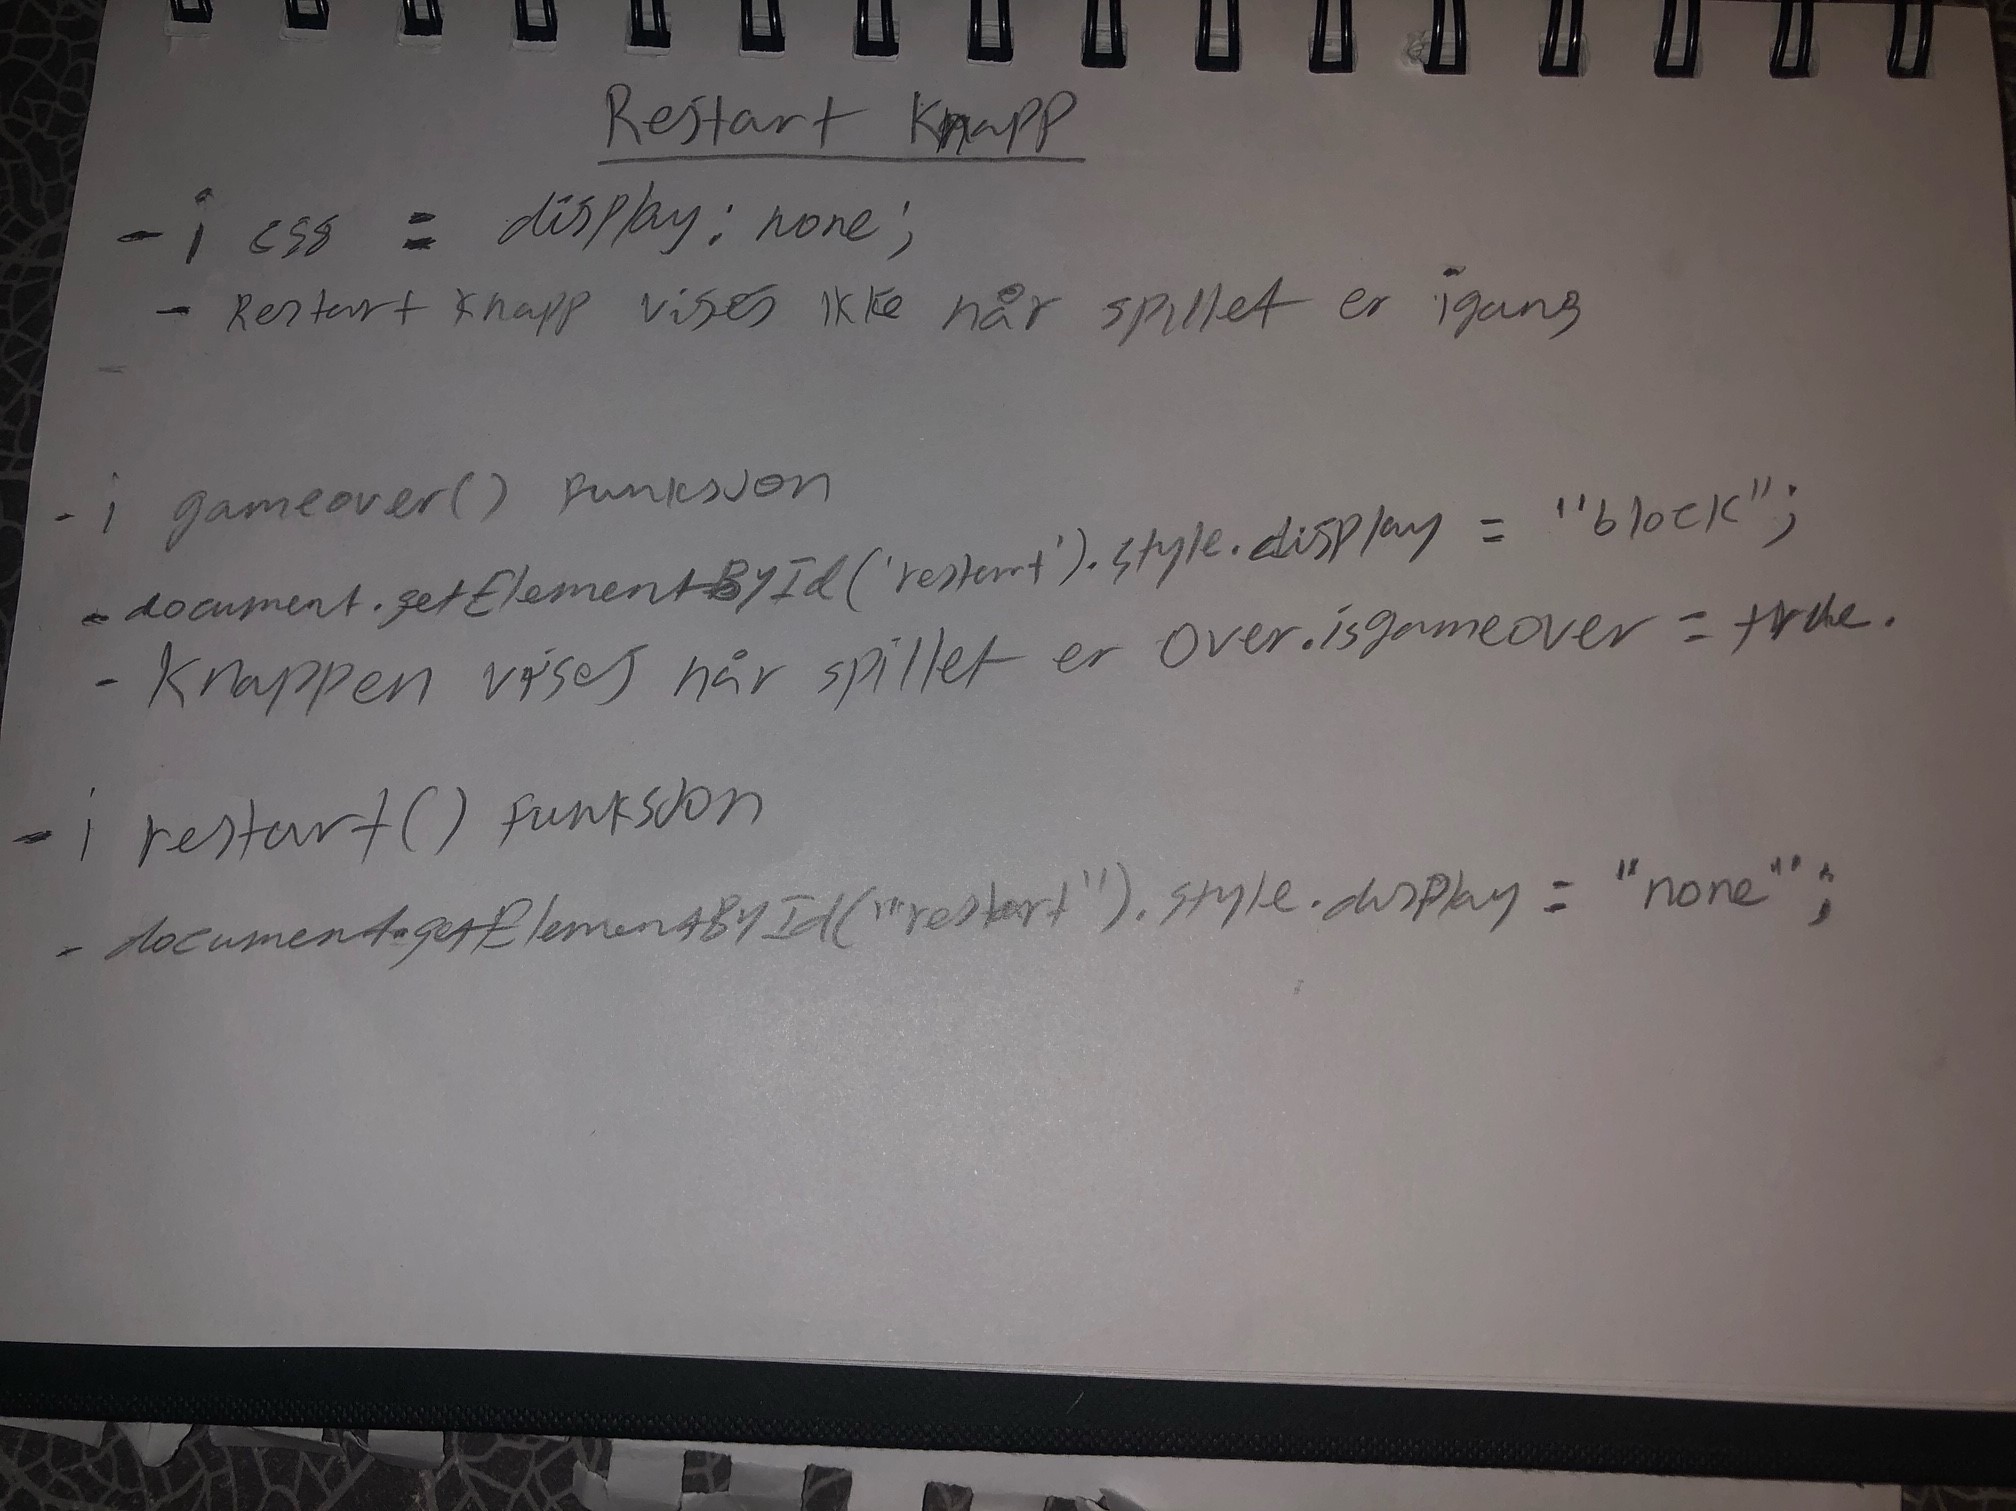 Restart Knapp
- i css = display: none;
- Restart knapp vises ikke når spillet er igang
-
- i gameover() funksjon
- document.getElementById('restart').style.display = "block";
- Knappen vises når spillet er over.isgameover = true.
- i restart() funksjon
- document.getElementById("restart").style.display = "none";